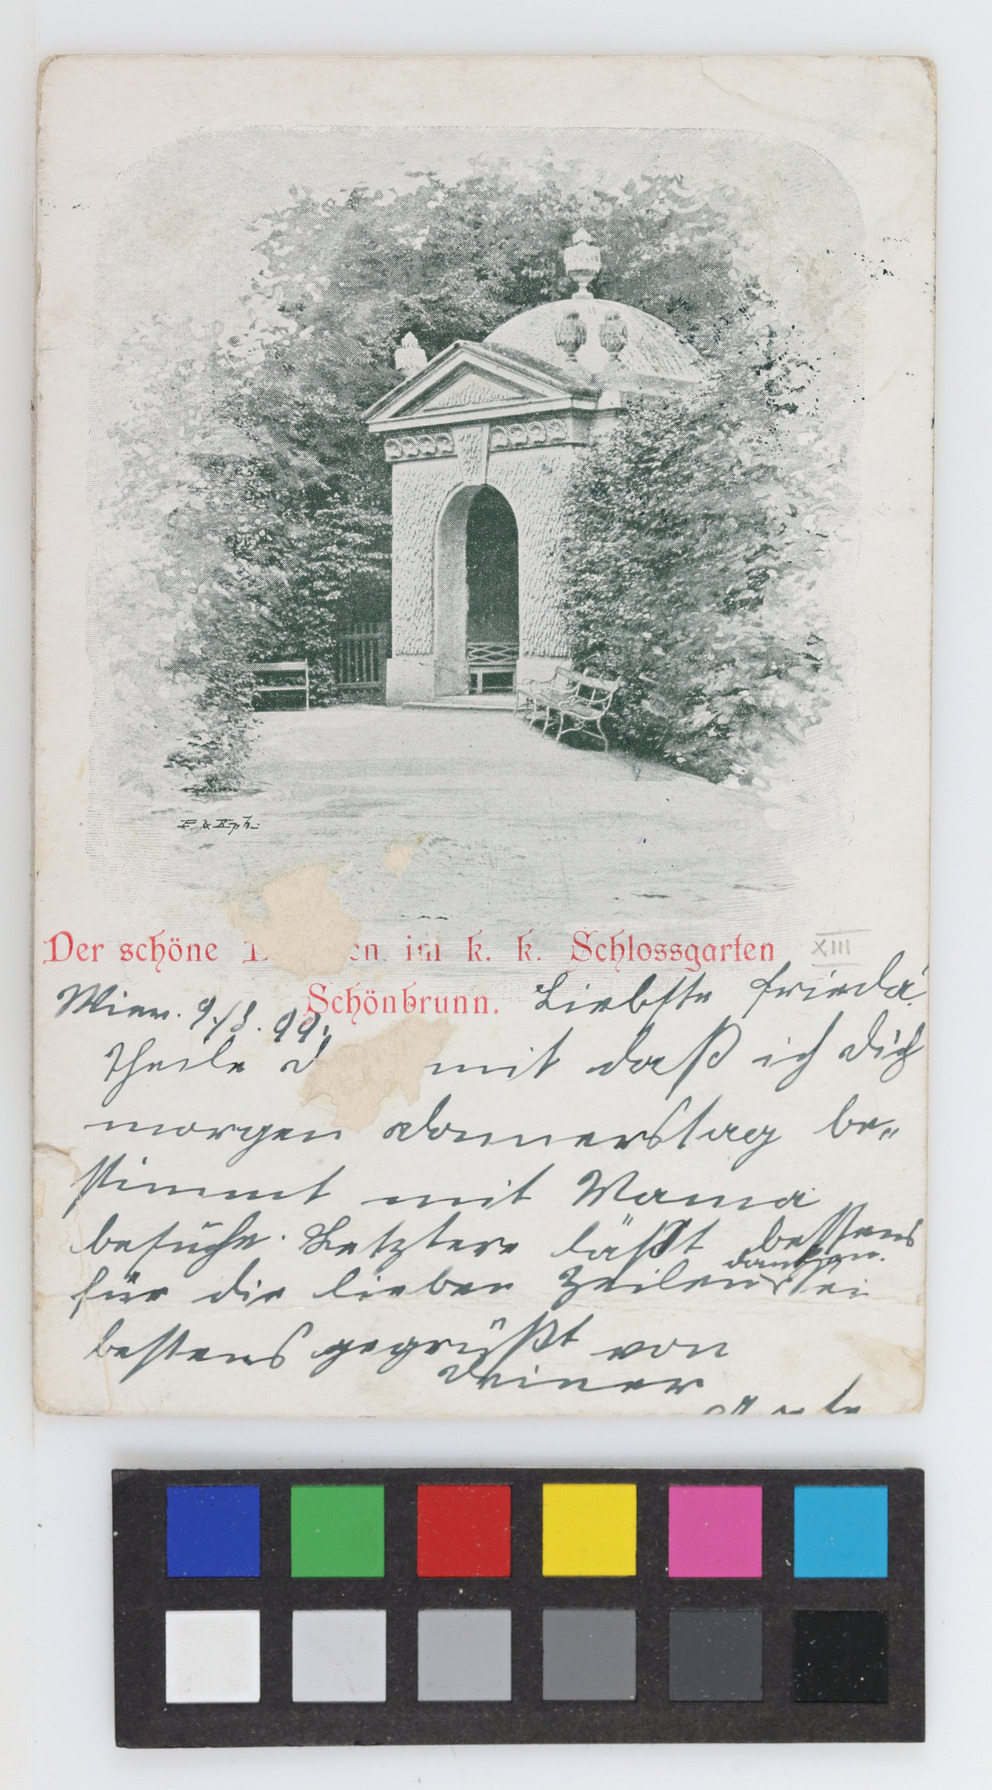 P. & K. ph.
Der schöne en im k. k. Schlossgarten
XIII
Schönbrunn.
Wien. 9./8. 99. Liebste Frieda!
Theile D mit daß ich dich
morgen Donnerstag be-
stimmt mit Mama
besuche. Letztere läßt bestens
danken.
für die lieben Zeilen Sei
bestens gegrüßt von
Deiner